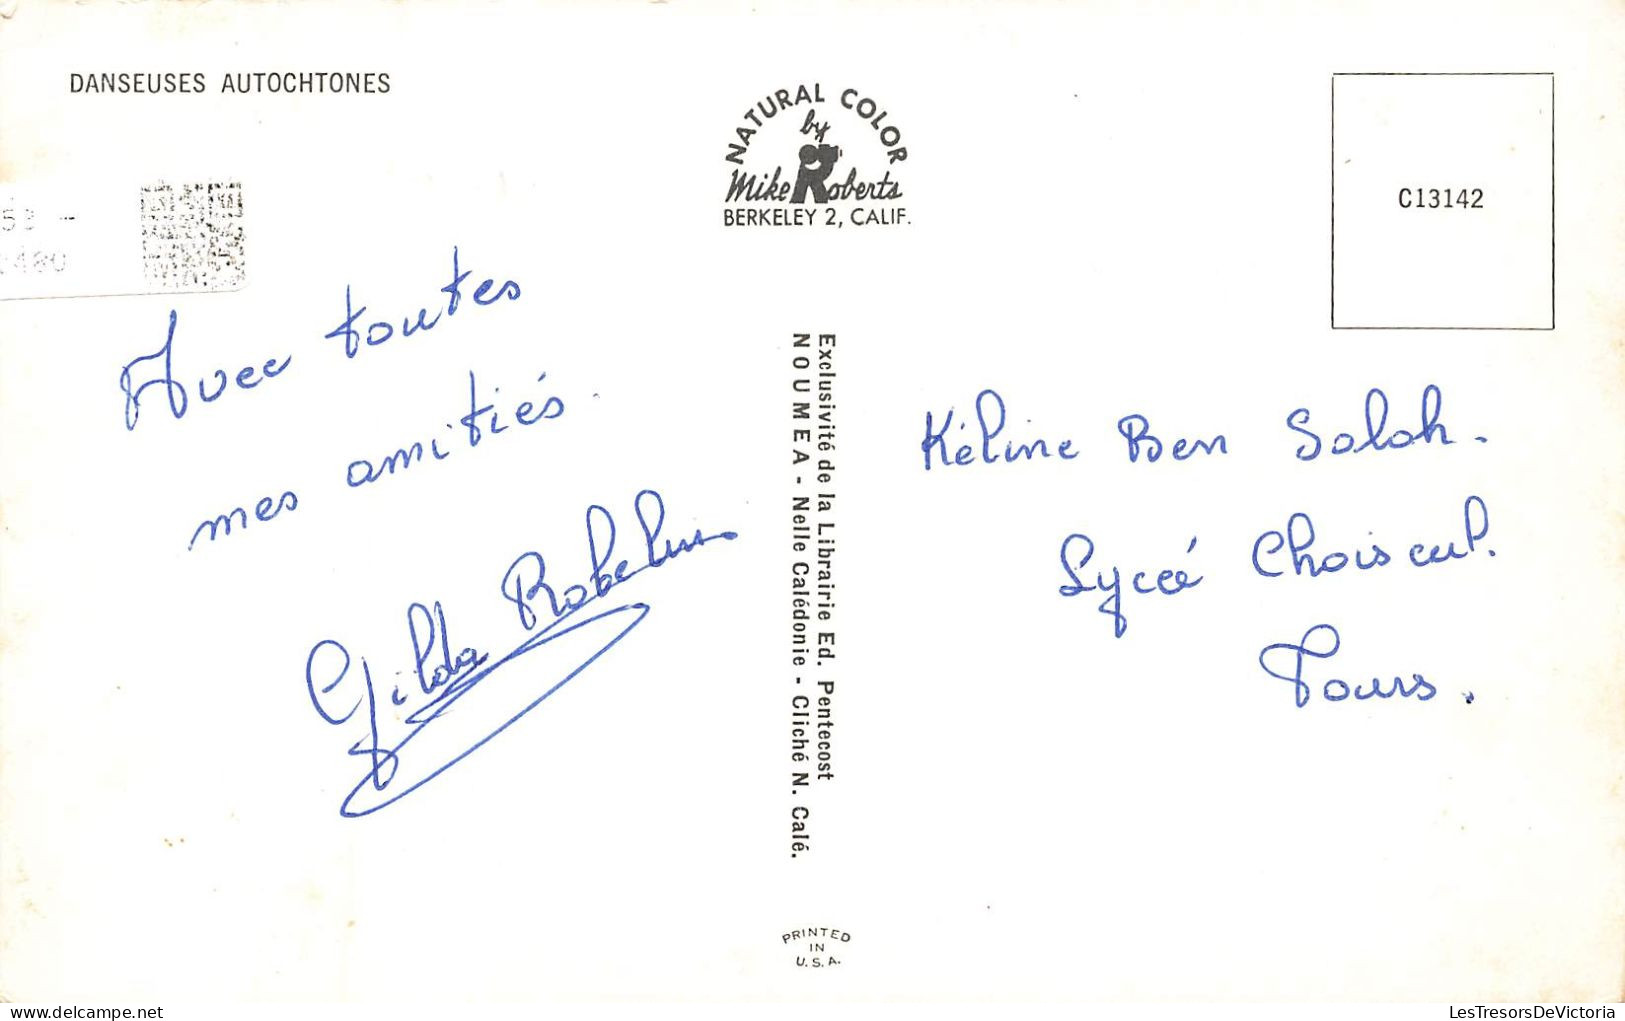 DANSEUSES AUTOCHTONES
NATURAL COLOR
by
Mike Roberts
BERKELEY 2, CALIF.
C13142
Avec toutes
mes amitiés.
Gilda
Exclusivité de la Librairie Ed. Pentecost
NOUMEA - Nelle Calédonie - Cliché N. Calé.
Kéline Ben Salah.
Lycée Choiseul.
Tours.
PRINTED
IN
U.S.A.
delcampe.net
LesTresorsDeVictoria